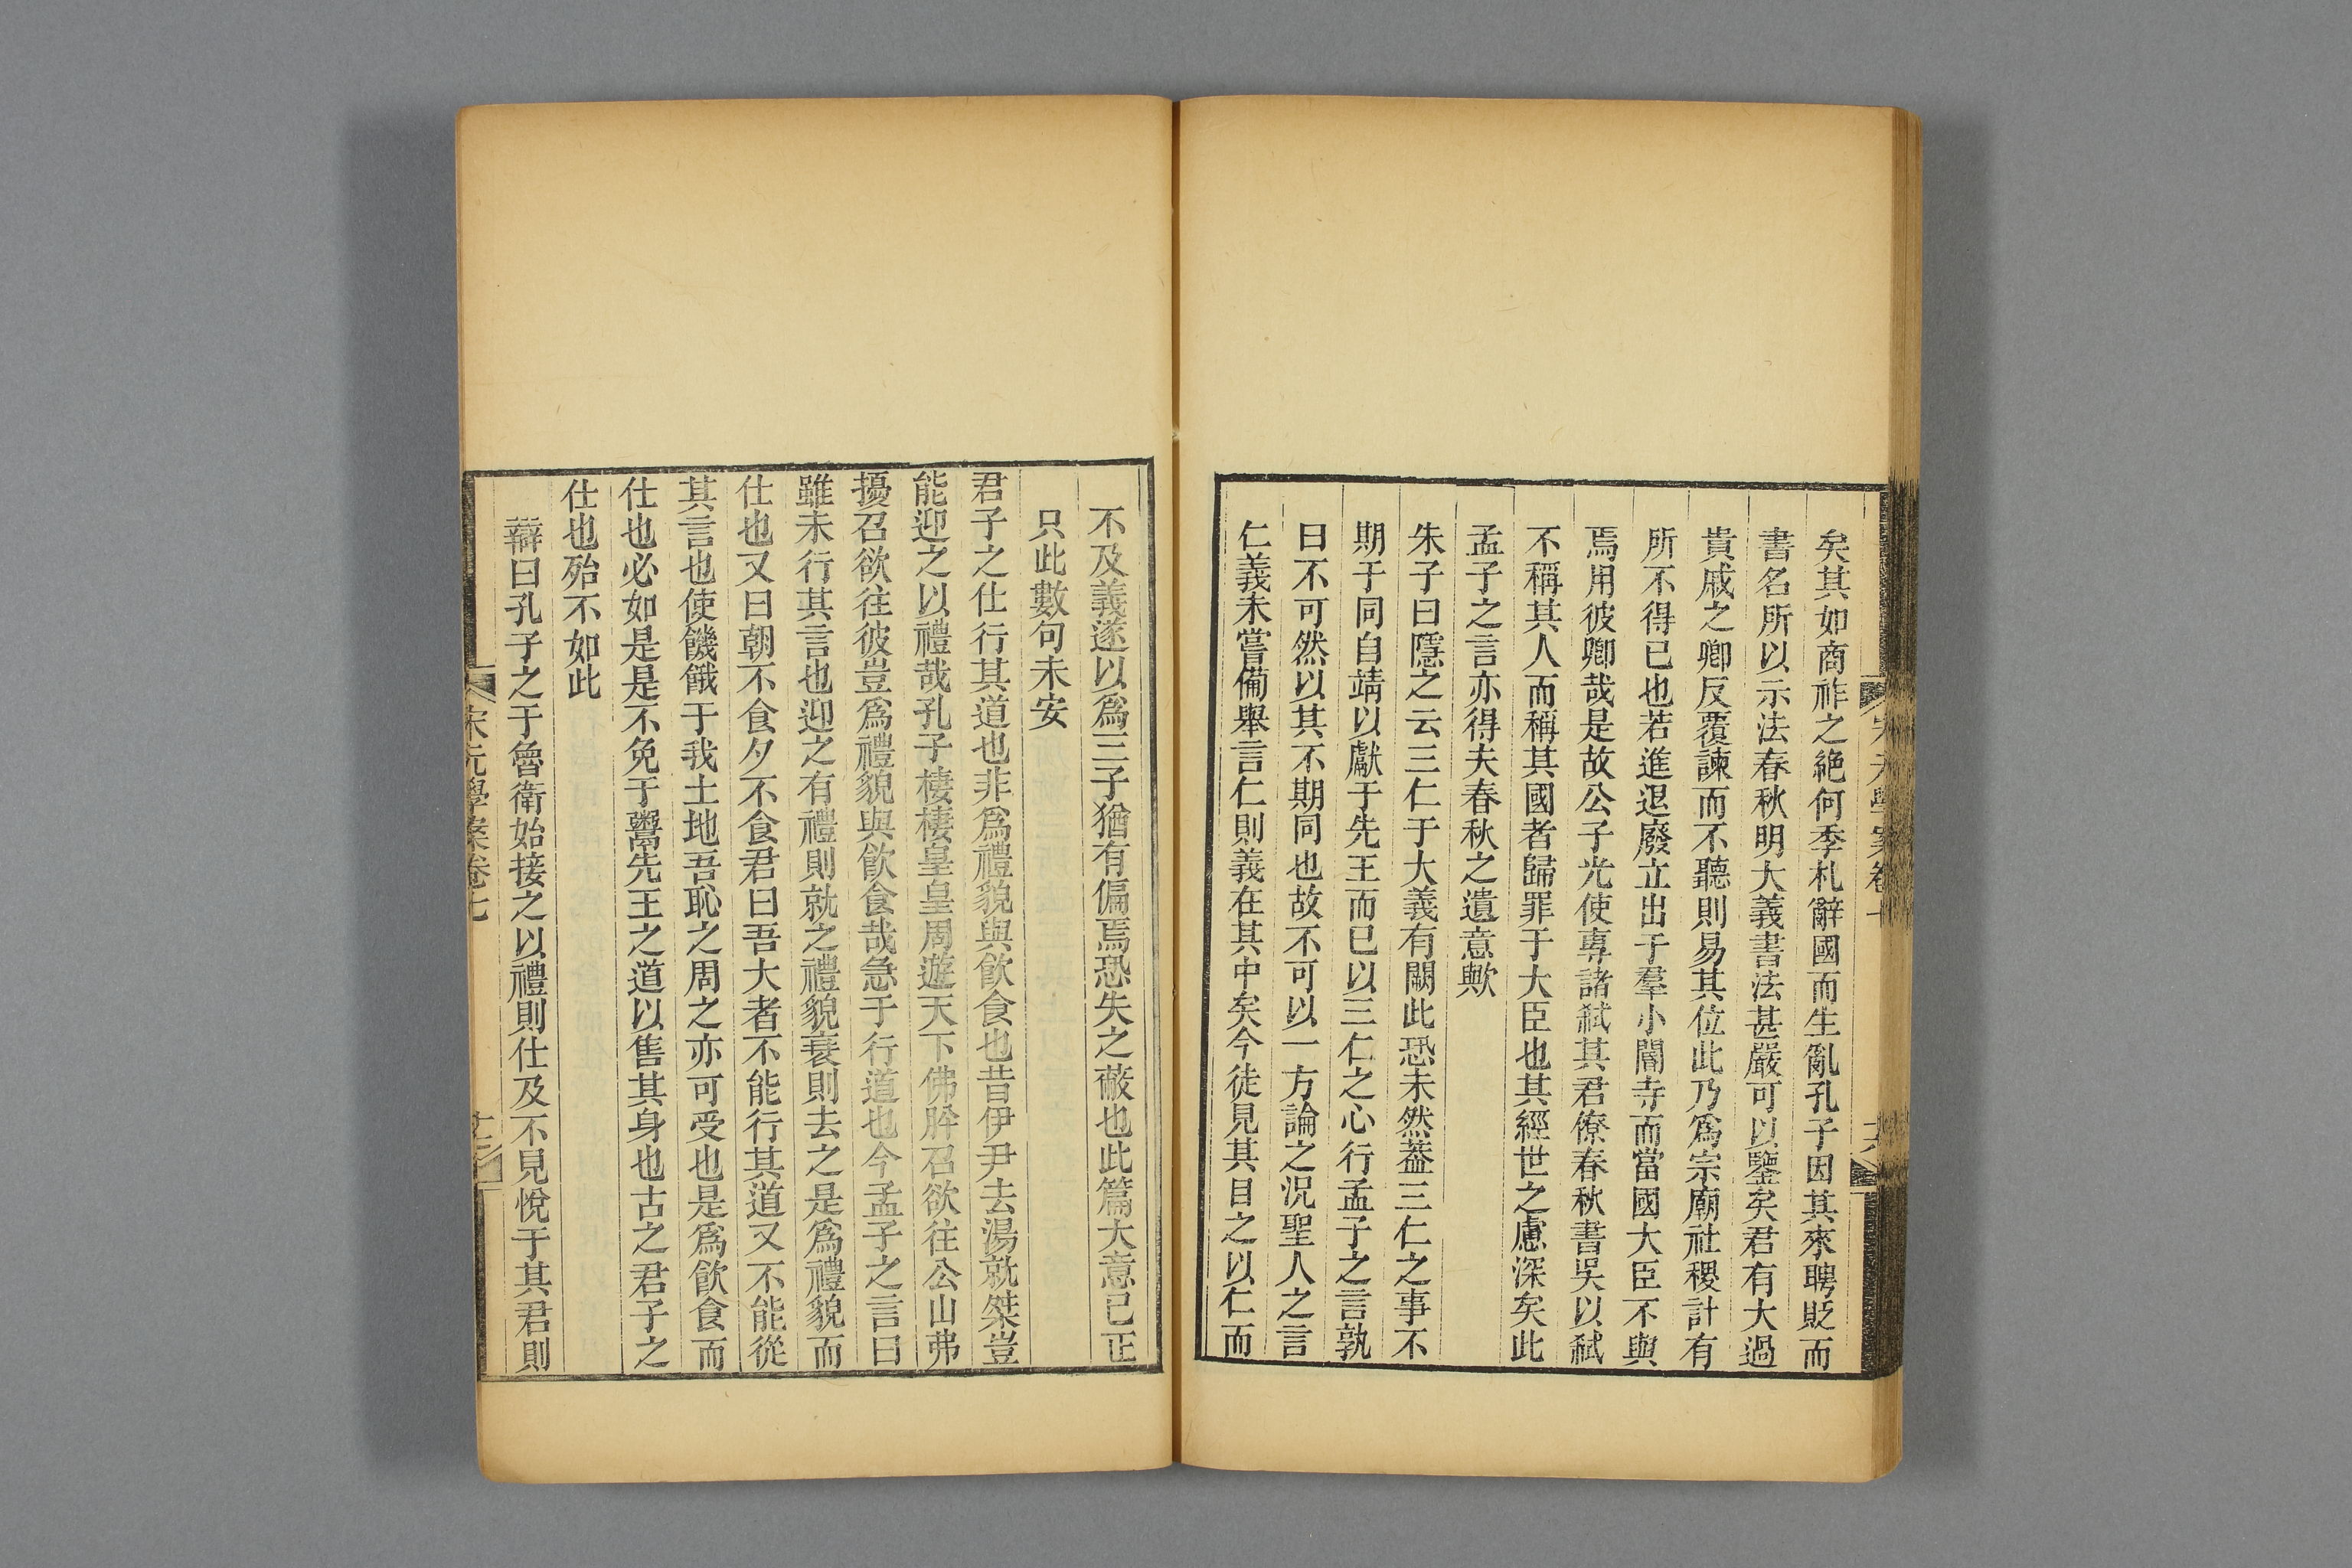 矣其如商祚之絶何季札辭國而生亂孔子因其來聘貶而
書名所以示法春秋明大義書法甚嚴可以鑒矣君有大過
貴戚之卿反覆諫而不聽則易其位此乃爲宗廟社稷計有
所不得已也若進退廢立出于羣小閽寺而當國大臣不與
焉用彼卿哉是故公子光使專諸弑其君僚春秋書吳以弑
不稱其人而稱其國者歸罪于大臣也其經世之慮深矣此
孟子之言亦得夫春秋之遺意歟
朱子曰隱之云三仁于大義有闕此恐未然蓋三仁之事不
期于同自靖以獻于先王而已以三仁之心行孟子之言孰
曰不可然以其不期同也故不可以一方論之況聖人之言
仁義未嘗備舉言仁則義在其中矣今徒見其目之以仁而
不及義遂以爲三子猶有偏焉恐失之蔽也此篇大意已正
只此數句未安
君子之仕行其道也非爲禮貌與飲食也昔伊尹去湯就桀豈
能迎之以禮哉孔子棲棲皇皇周遊天下佛肸召欲往公山弗
擾召欲往彼豈爲禮貌與飲食哉急于行道也今孟子之言曰
雖未行其言也迎之有禮則就之禮貌衰則去之是爲禮貌而
仕也又曰朝不食夕不食君曰吾大者不能行其道又不能從
其言也使饑餓于我土地吾恥之周之亦可受也是爲飲食而
仕也必如是是不免于鬻先王之道以售其身也古之君子之
仕也殆不如此
辯曰孔子之于魯衛始接之以禮則仕及不見悅于其君則
宋元學案卷七